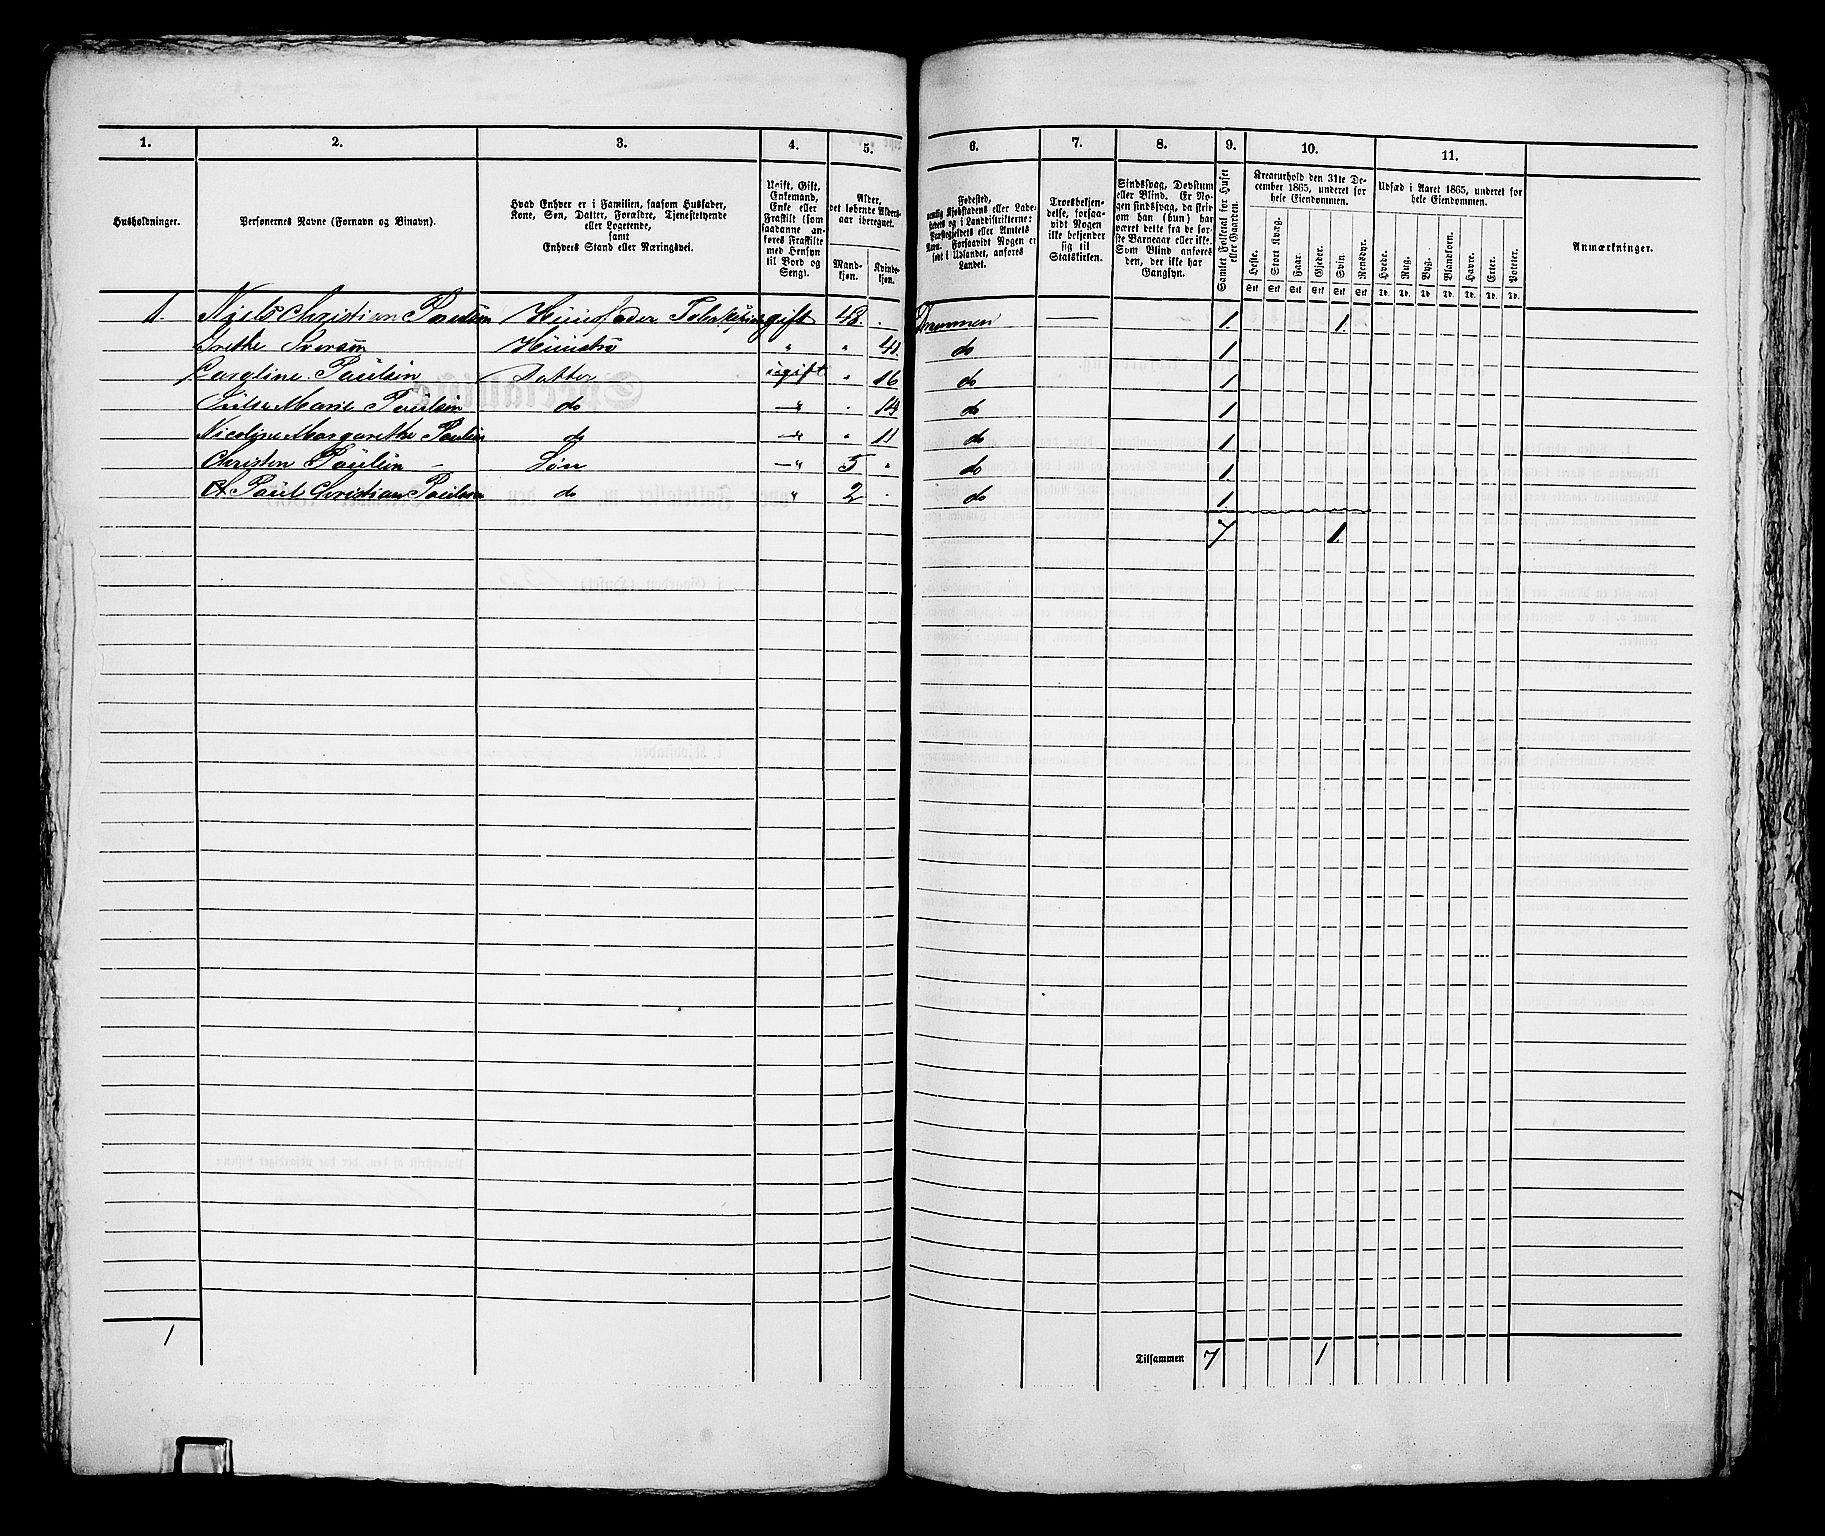 1. 2. 3. 4. 5. 6. 7. 8. 9. 10. 11.
Husholdninger.
Personernes Navne (Fornavn og Binavn).
Hvad Enhver er i Familien, saasom Husfader,
Kone, Søn, Datter, Forældre, Tjenestetyende
eller Logerende,
samt
Enhvers Stand eller Næringsvei.
Ugift, Gift,
Enkemand,
Enke eller
Fraskilt (som
saadanne an-
føres Fraskilte
med Hensyn
til Bord og
Seng).
Alder,
det løbende Alders-
aar iberegnet.
Mand-
kjøn.
Kvinde-
kjøn.
Fødested,
nemlig Kjøbstadens eller Lade-
stedets og i Landdistrikterne:
Præstegjeldets eller Amtets
Navn. Forsaavidt Nogen er
født i Udlandet, anføres
Landet.
Troesbekjen-
delse, forsaa-
vidt Nogen
ikke bekjender
sig til
Statskirken.
Sindssvag, Døvstum
eller Blind. Er No-
gen sindssvag, da skriv
om han (hun) har
været dette fra de før-
ste Barneaar eller ikke.
Som Blind anføres
den, der ikke har
Gangsyn.
Samlet Folketal for Huset
eller Gaarden.
Kreaturhold den 31te De-
cember 1865, underet for
hele Eiendommen.
Heste. Stort Kvæg. Faar. Gjeder. Svin. Rensdyr.
Stk Stk Stk Stk Stk Stk
Udsæd i Aaret 1865, underet for
hele Eiendommen.
Hvede. Rug. Byg. Blandkorn. Havre. Erter. Poteter.
Td. Td. Td. Td. Td. Td. Td.
Anmærkninger.
1. Niels Christian Paulsen Huusfader gift 48. Drammen 1. 1.
Grethe Huustro " " do 1
Caroline Paulsen Datter ugift " 16 do 1
Marie Paulsen do " 14 do 1
Nicoline Margarethe Paulsen do " " 11 do 1
Christen Paulsen Søn " 5 " do 1.
Paul Christian Paulsen do " 2 do 1.
7. 1.
1
Tilsammen 7 1